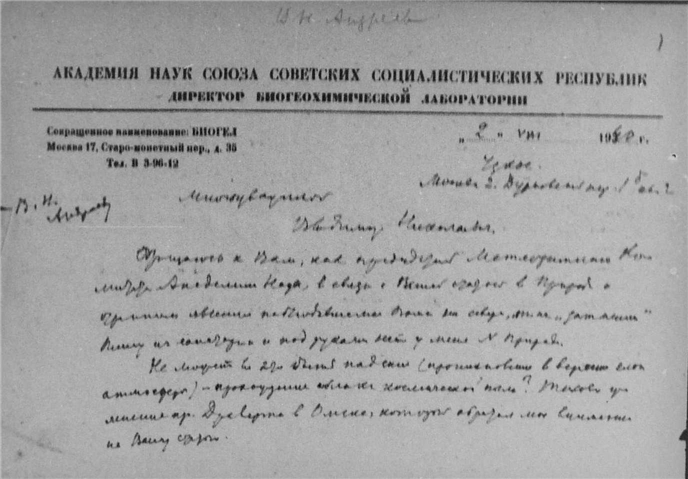 В Н Андреев
1
АКАДЕМИЯ НАУК СОЮЗА СОВЕТСКИХ СОЦИАЛИСТИЧЕСКИХ РЕСПУБЛИК
ДИРЕКТОР БИОГЕОХИМИЧЕСКОЙ ЛАБОРАТОРИИ
Сокращенное наименование: БИОГЕЛ
Москва 17, Старо-монетный пер., д. 35
Тел. В 3-96-12
„ 2 „ VIII 1940 г.
Узкое.
Москва 2. Дурновский пер. 1
В. Н.
Андреев
Многоуважаемый
Владимир Николаевич,
Обращаюсь к Вам, как председатель Метеоритного Ко-
митета Академии Наук, в связи с Вашей статьей в Природе о
явлении наблюдавшемся Вами на севере, типа „затмения"
Пишу из санатория и под руками нет у меня N Природы.
Не может ли это быть падение (проникновение в верхние слои
атмосферы) – прохождение облака космической пыли? Таково
мнение пр. Драверта в Омске, который обратил мое внимание
на Вашу статью.